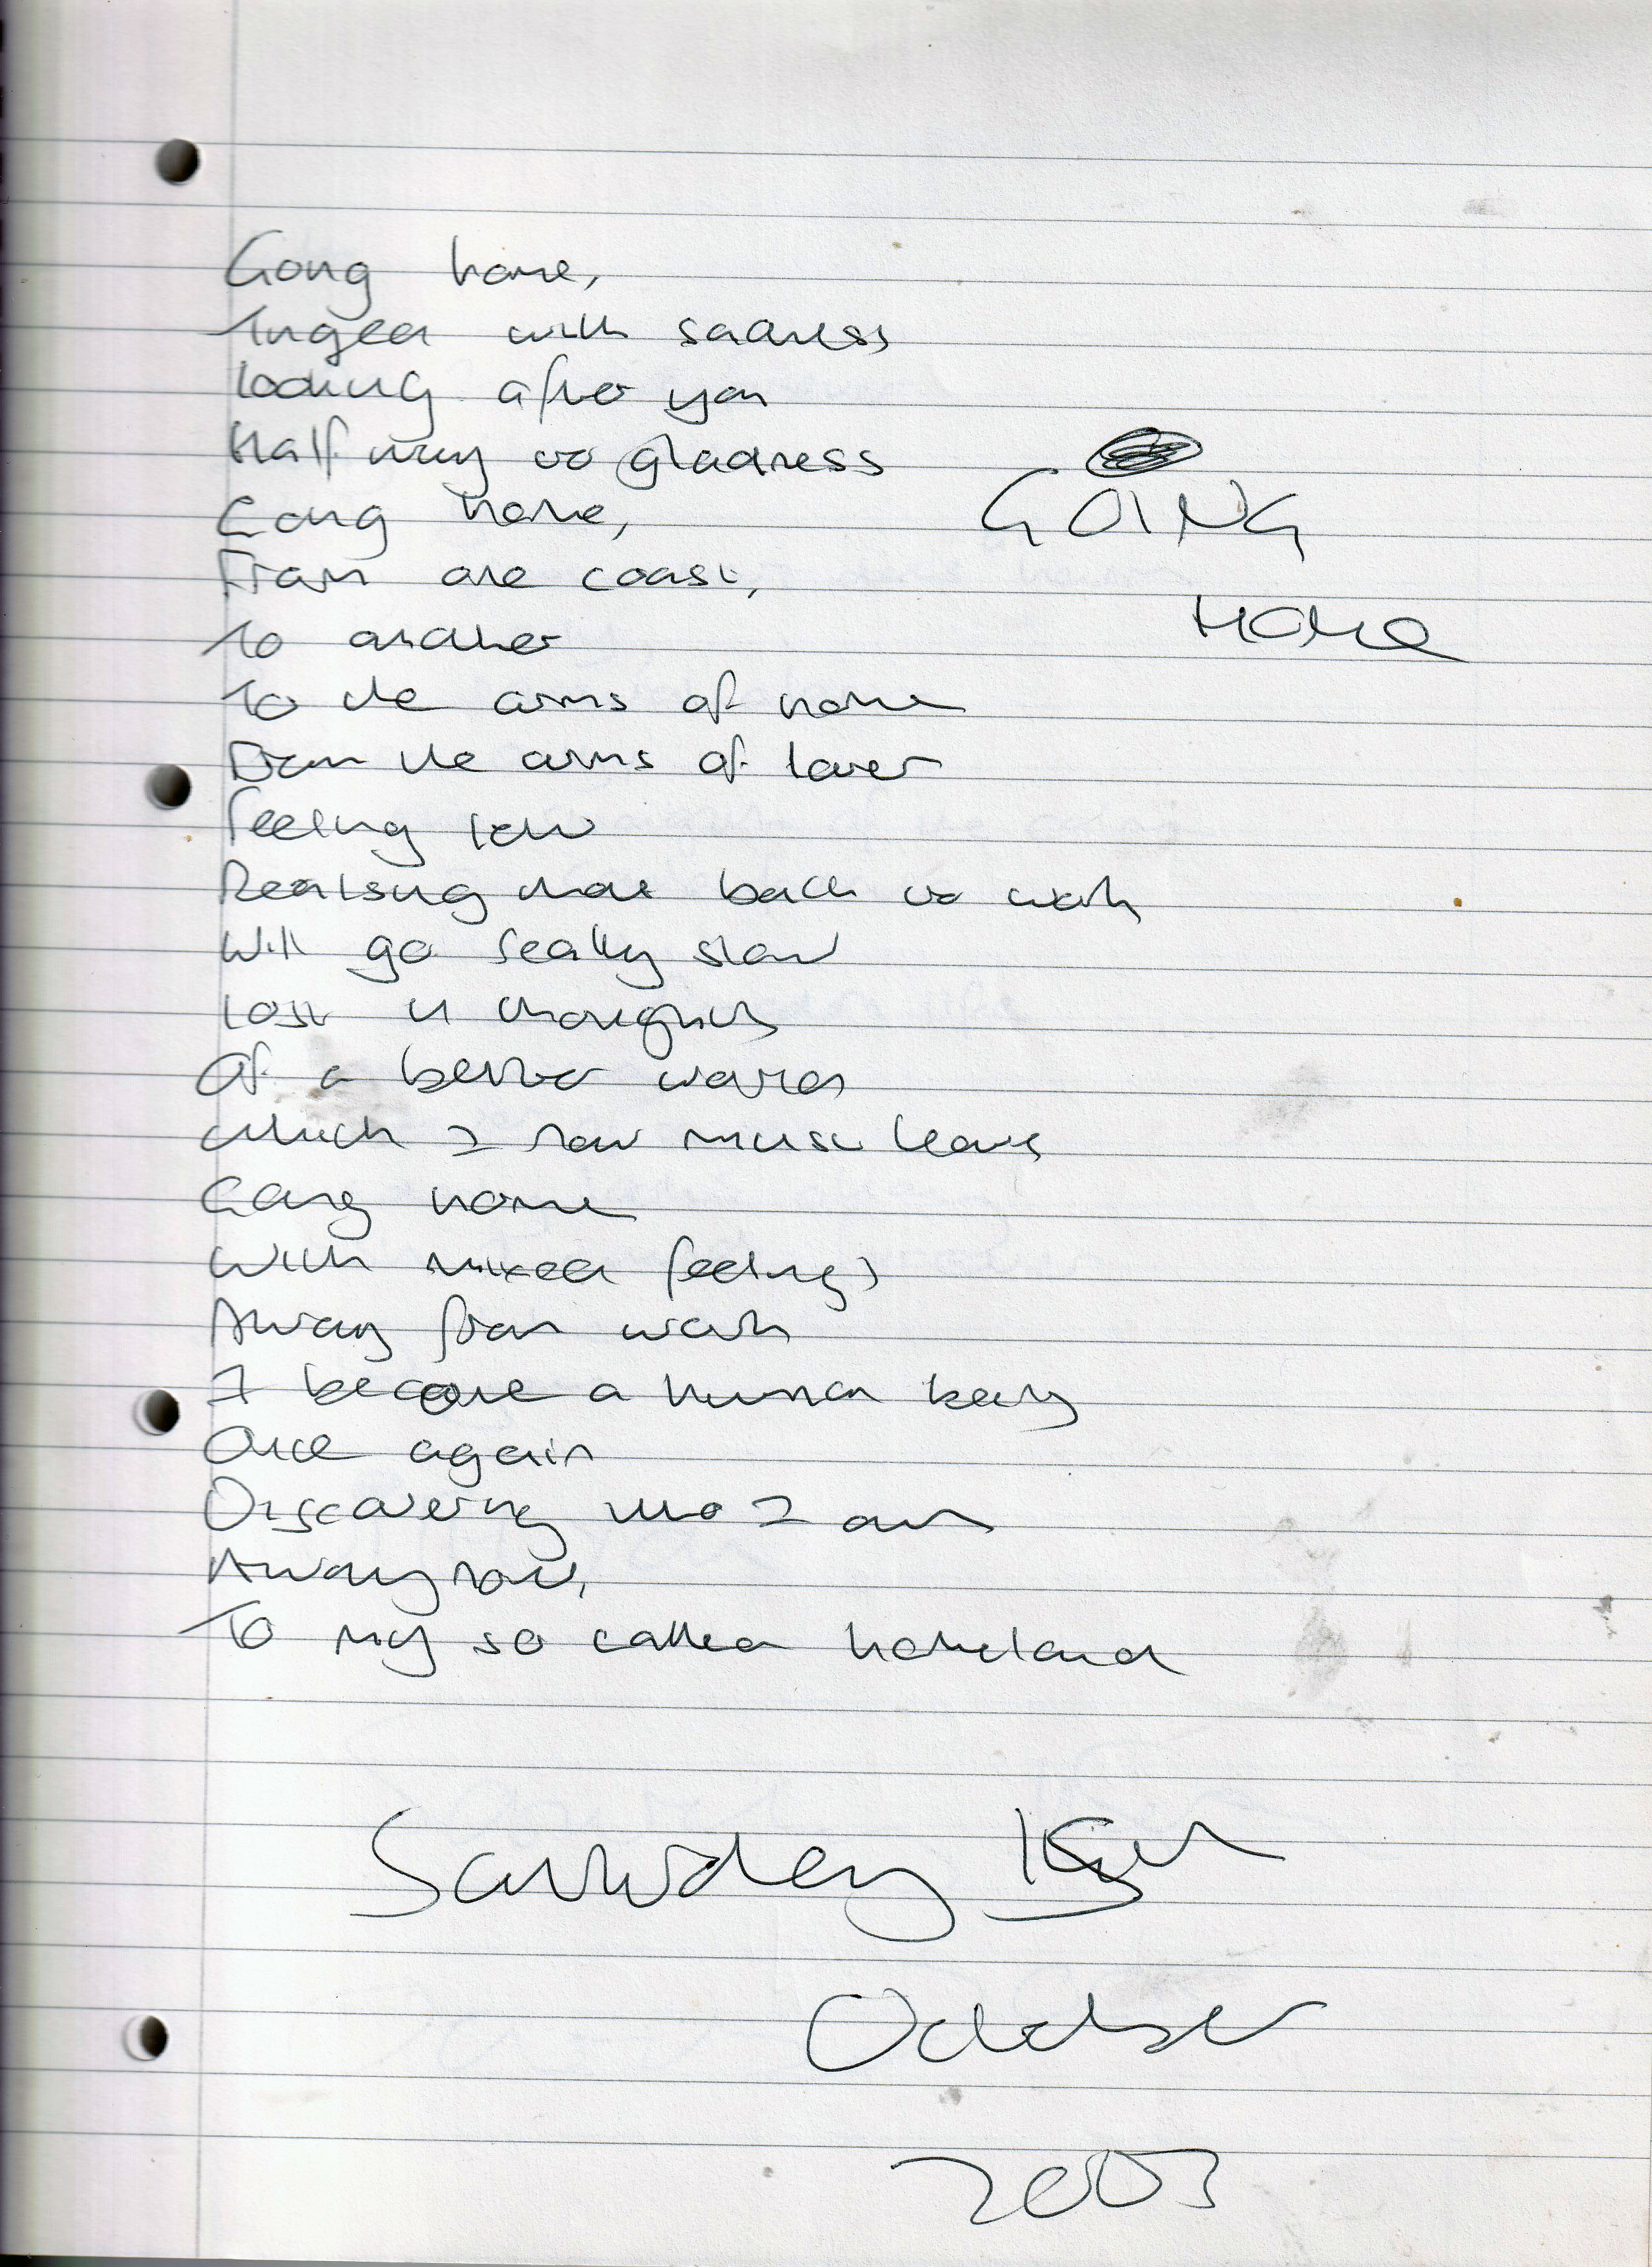 Going home,
Tinged with sadness
looking after you
Half way to gladness
Going home,
From one coast,
To another
To the arms of home
From the arms of lover
Feeling low
Realising that back to work
Will go really slow
Lost in thoughts
Of a better world
which I now must leave
Going home
with mixed feelings
Away from work
I become a human being
Once again
Discovering who I am
Away now,
To my so called homeland
GOING
HOME
Saturday 18th
October
2003